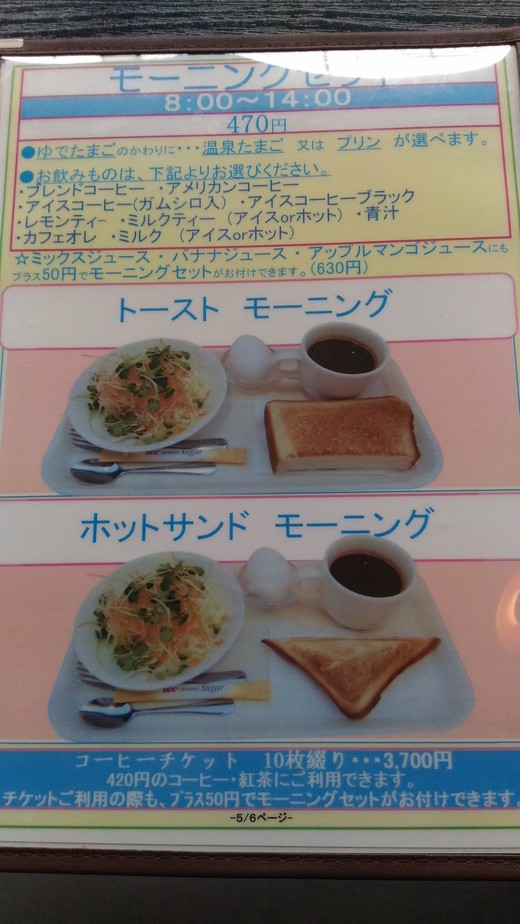 モーニングセット
8:00～14:00
470円
●ゆでたまごのかわりに・・・温泉たまご 又は プリン が選べます。
●お飲みものは、下記よりお選びください。
・ブレンドコーヒー ・アメリカンコーヒー
・アイスコーヒー(ガムシロ入) ・アイスコーヒーブラック
・レモンティー ・ミルクティー (アイスorホット) ・青汁
・カフェオレ ・ミルク (アイスorホット)
☆ミックスジュース・バナナジュース・アップルマンゴジュースにも
プラス50円でモーニングセットがお付けできます。(630円)
トースト モーニング
Sugar
ホットサンド モーニング
Sugar
コーヒーチケット 10枚綴り・・・3,700円
420円のコーヒー・紅茶にご利用できます。
チケットご利用の際も、プラス50円でモーニングセットがお付けできます。
-5/6ページ-